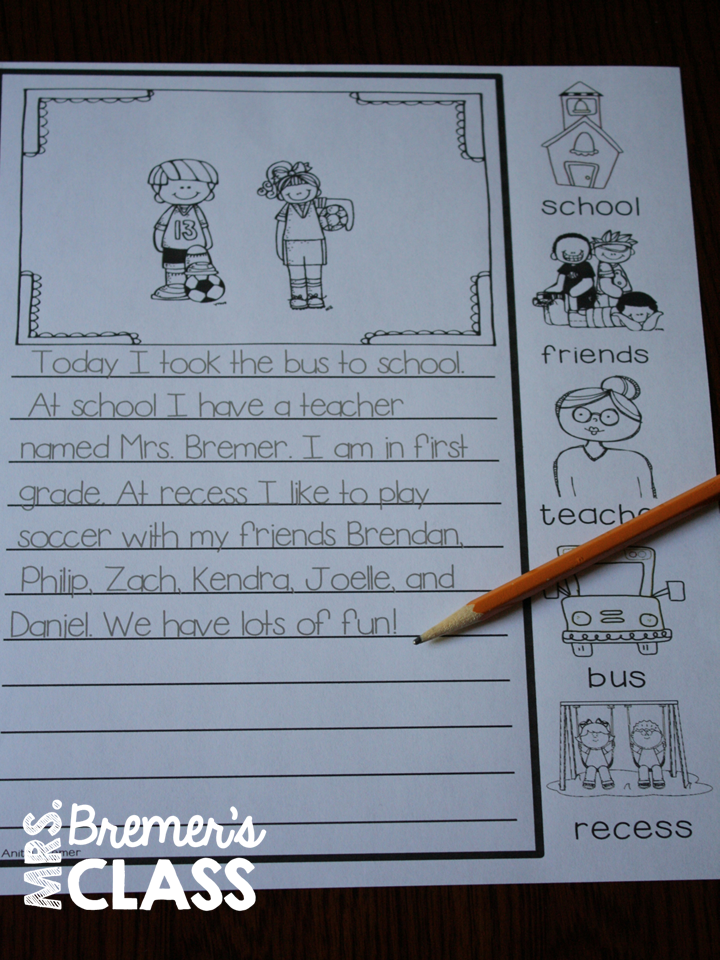 13
Today I took the bus to school.
At school I have a teacher
named Mrs. Bremer. I am in first
grade. At recess I like to play
soccer with my friends Brendan,
Philip, Zach, Kendra, Joelle, and
Daniel. We have lots of fun!
school
friends
bus
recess
MRS. Bremer's
CLASS